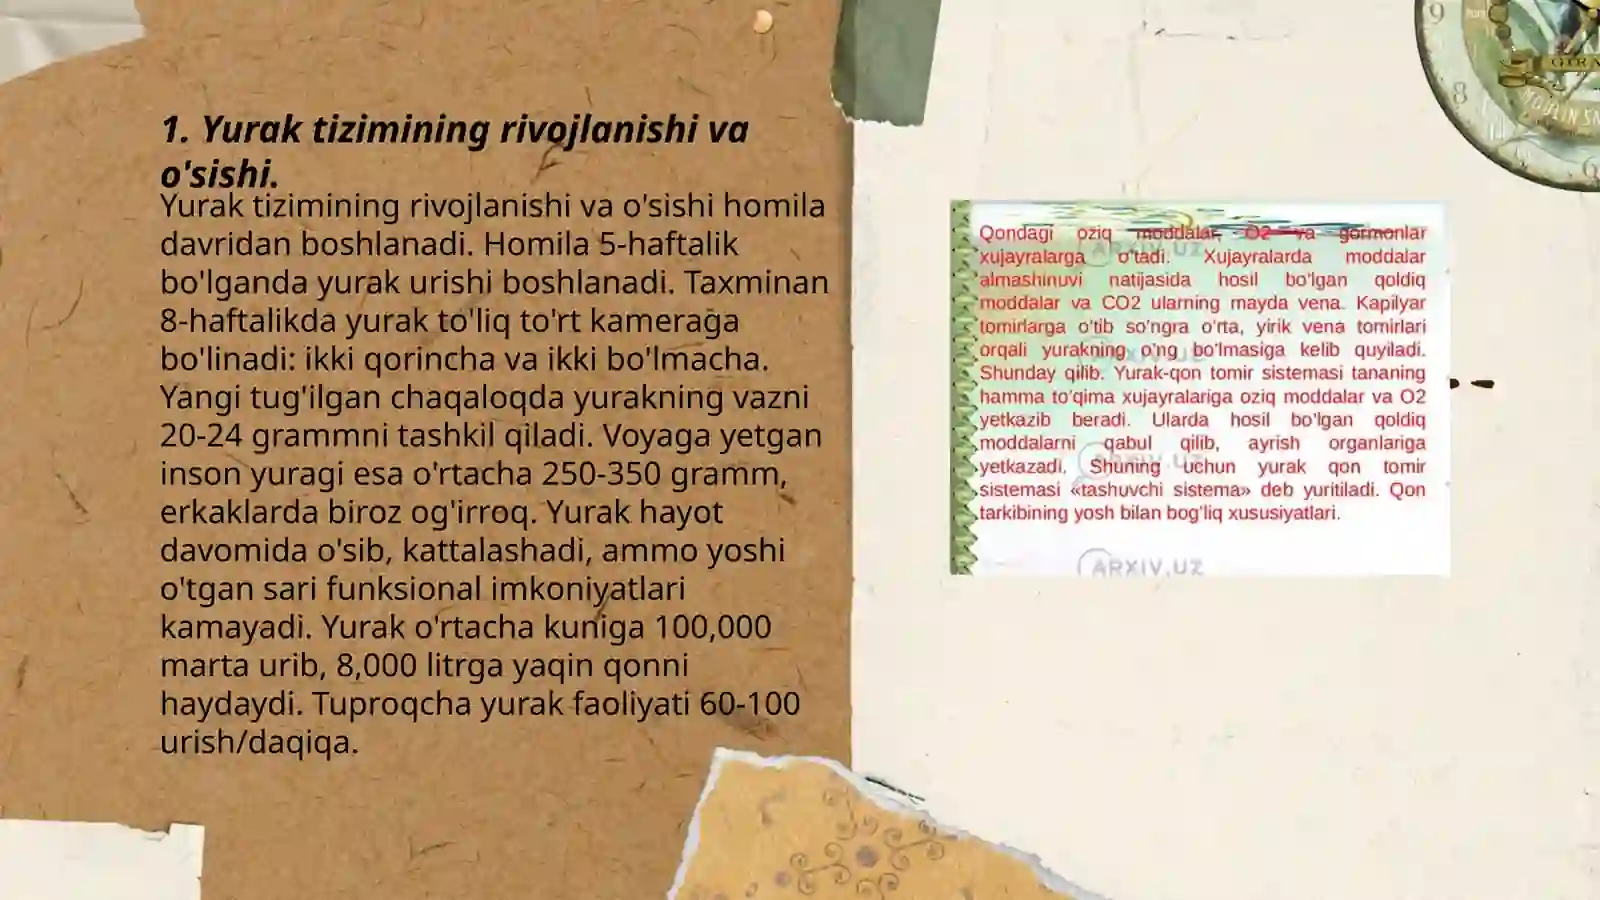 1. Yurak tizimining rivojlanishi va
o'sishi.
Yurak tizimining rivojlanishi va o'sishi homila
davridan boshlanadi. Homila 5-haftalik
bo'lganda yurak urishi boshlanadi. Taxminan
8-haftalikda yurak to'liq to'rt kameraga
bo'linadi: ikki qorincha va ikki bo'lmacha.
Yangi tug'ilgan chaqaloqda yurakning vazni
20-24 grammni tashkil qiladi. Voyaga yetgan
inson yuragi esa o'rtacha 250-350 gramm,
erkaklarda biroz og'irroq. Yurak hayot
davomida o'sib, kattalashadi, ammo yoshi
o'tgan sari funksional imkoniyatlari
kamayadi. Yurak o'rtacha kuniga 100,000
marta urib, 8,000 litrga yaqin qonni
haydaydi. Tuproqcha yurak faoliyati 60-100
urish/daqiqa.
Qondagi oziq moddalar, O2 va gormonlar
xujayralarga o'tadi. Xujayralarda moddalar
almashinuvi natijasida hosil bo'lgan qoldiq
moddalar va CO2 ularning mayda vena. Kapilyar
tomirlarga o'tib so'ngra o'rta, yirik vena tomirlari
orqali yurakning o'ng bo'lmasiga kelib quyiladi.
Shunday qilib. Yurak-qon tomir sistemasi tananing
hamma to'qima xujayralariga oziq moddalar va O2
yetkazib beradi. Ularda hosil bo'lgan qoldiq
moddalarni qabul qilib, ayrish organlariga
yetkazadi. Shuning uchun yurak qon tomir
sistemasi «tashuvchi sistema» deb yuritiladi. Qon
tarkibining yosh bilan bog'liq xususiyatlari.
ARXIV.UZ
ARXIV.UZ
ARXIV.UZ
ARXIV.UZ
9
8
6